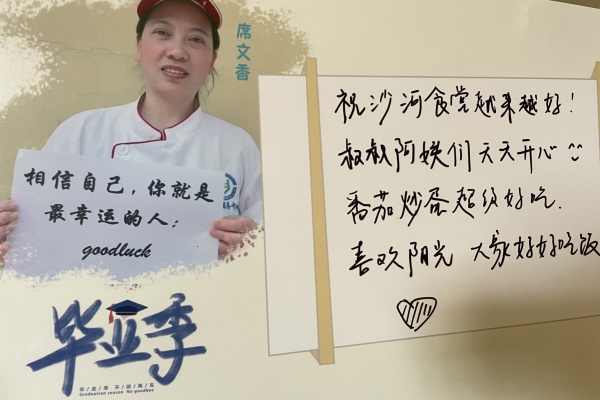 席文香
相信自己，你就是
最幸运的人；
goodluck
毕业季
毕/业/季 不/说/再/见
Graduation season No goodbye
祝沙河食堂越来越好！
叔叔阿姨们天天开心
番茄炒蛋超级好吃.
喜欢阳光 大家好好吃饭